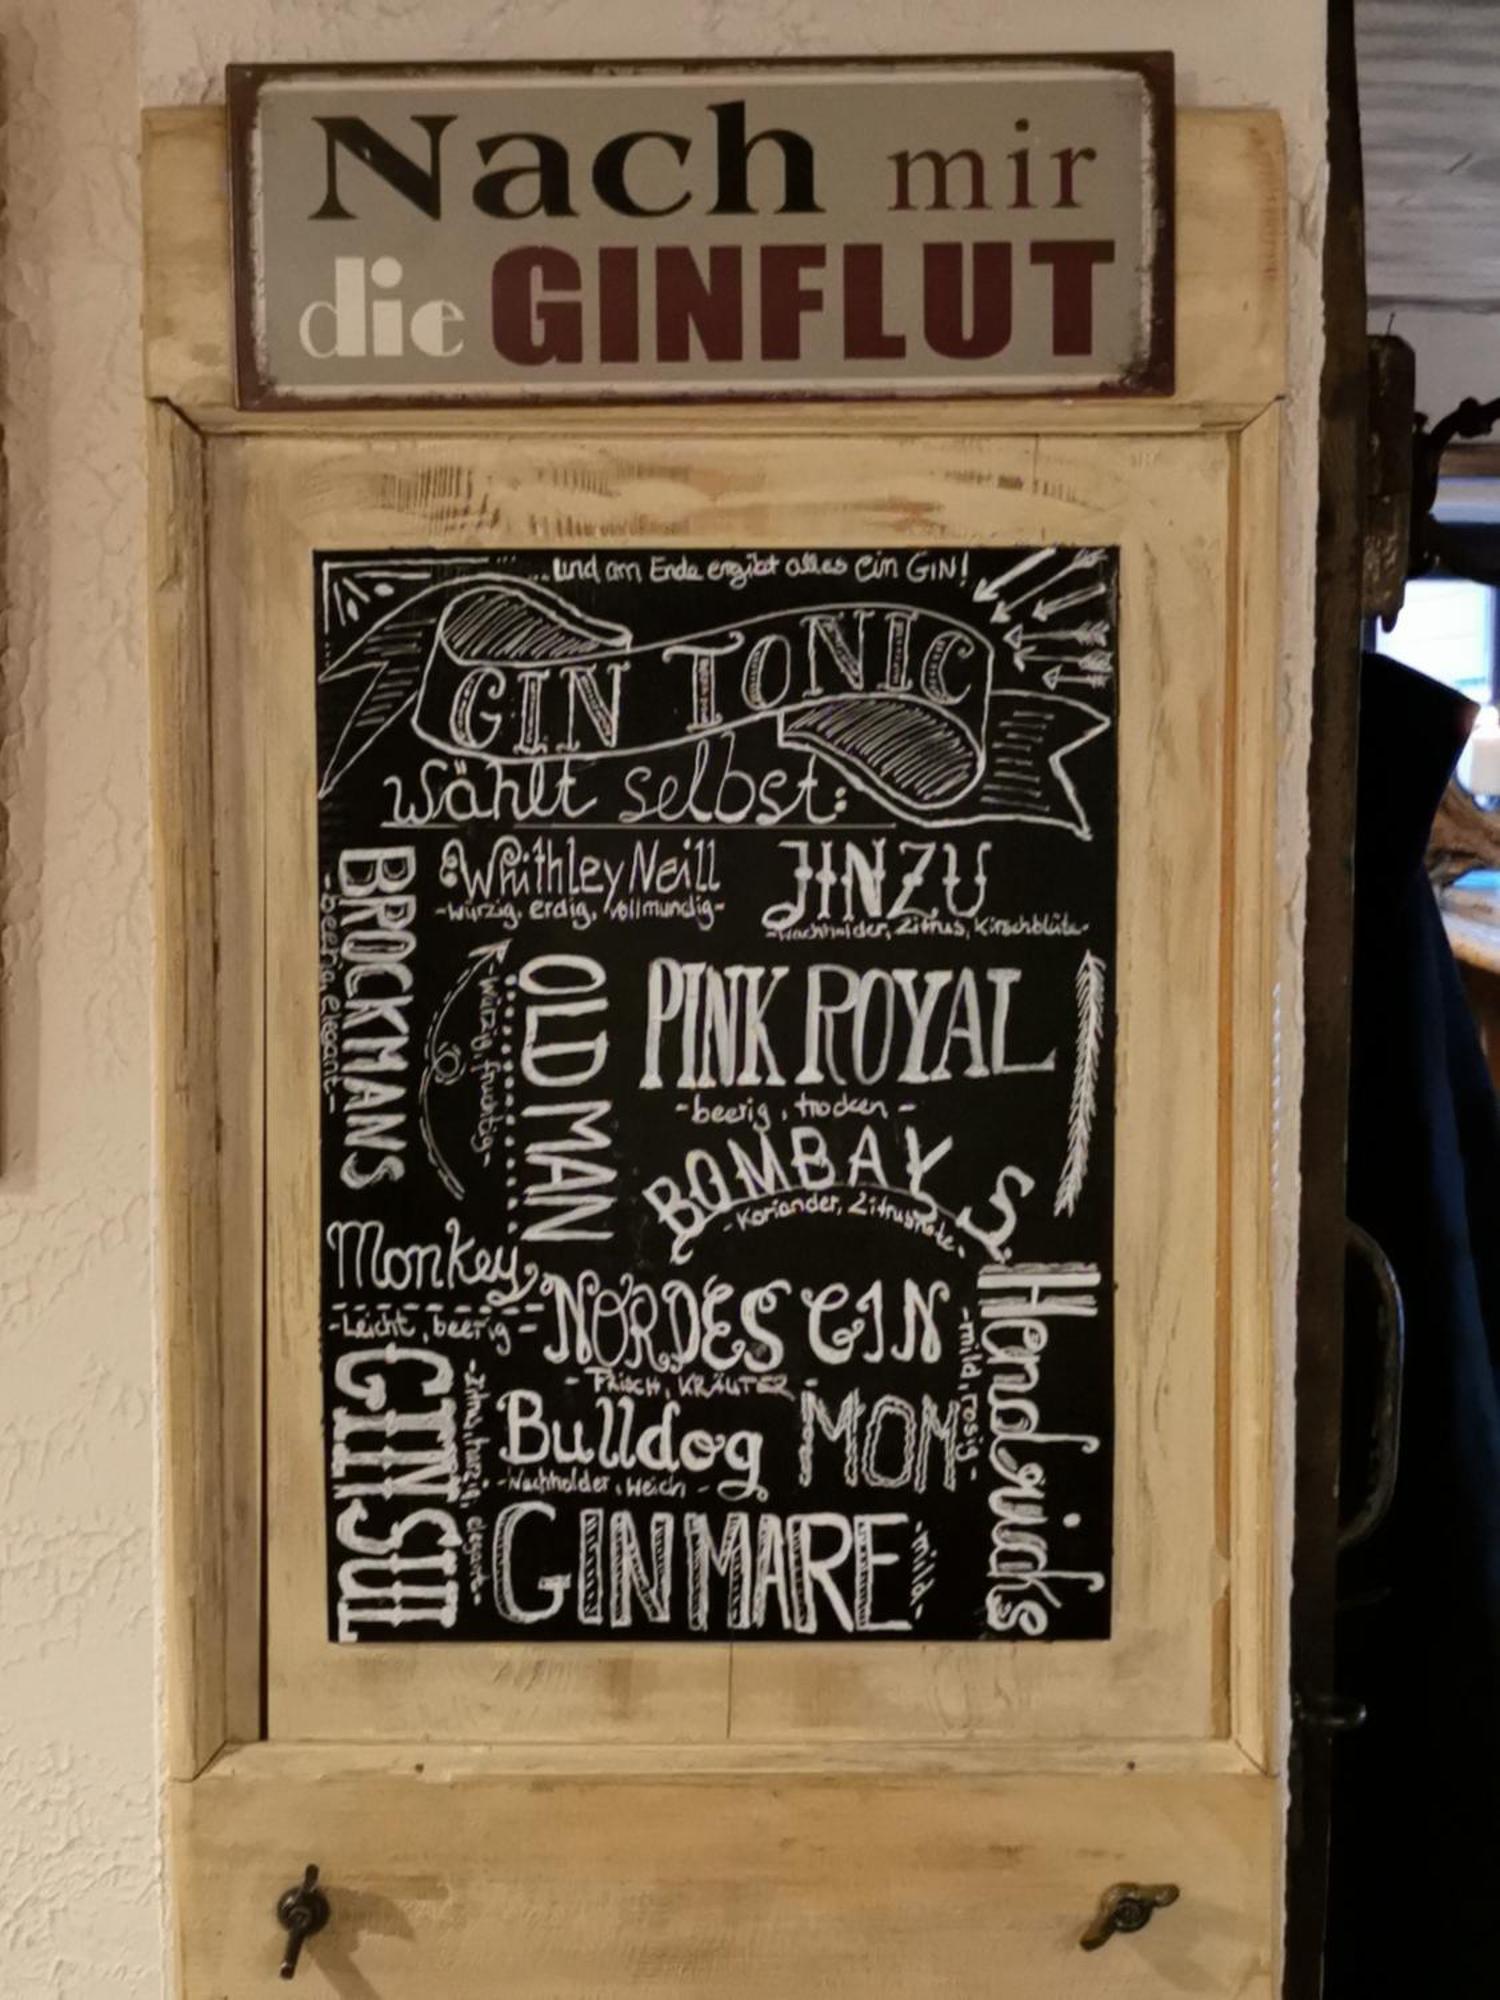 Nach mir
die GINFLUT
...und am Ende ergibt alles ein GIN!
GIN TONIC
wählt selbst:
Whithley Neill
-würzig, erdig, vollmundig-
JINZU
-Wachholder, Zitrus, Kirschblüte-
BROCKMANS
-beerig, elegant-
OLD MAN
-würzig, fruchtig-
PINK ROYAL
-beerig, trocken-
BOMBAY S.
-Koriander, Zitrusnote-
Monkey
-Leicht, beerig-
NORDES GIN
-FRISCH, KRÄUTER-
Hendricks
-mild, rosig-
GIN SUL
Bulldog
-Wachholder, weich-
MOM
GIN MARE
-mild-